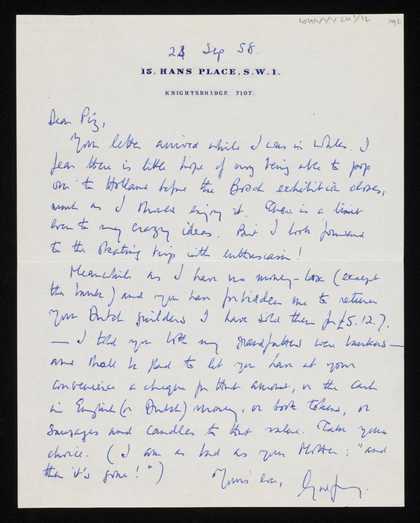 23 Sep 58.
15, HANS PLACE, S.W.1.
KNIGHTSBRIDGE 7107.
Dear Piz,
Your letter arrived while I was in Wales. I
fear there is little hope of my being able to pop
over to Holland before the Bosch exhibition closes,
much as I should enjoy it. There is a limit
even to my crazy ideas. But I look forward
to the skating trip with enthusiasm!
Meanwhile as I have no money-box (except
the bank) and you have forbidden me to return
your Dutch guilders I have sold them for £5.12.7.
— I told you both my grandfathers were bankers —
and shall be glad to let you have at your
convenience a cheque for that amount, or the cash
in English (or Dutch) money, or book tokens, or
sausages and candles to that value. Take your
choice. (I am as bad as your Mother: "and
then it's gone!")
Yours ever,